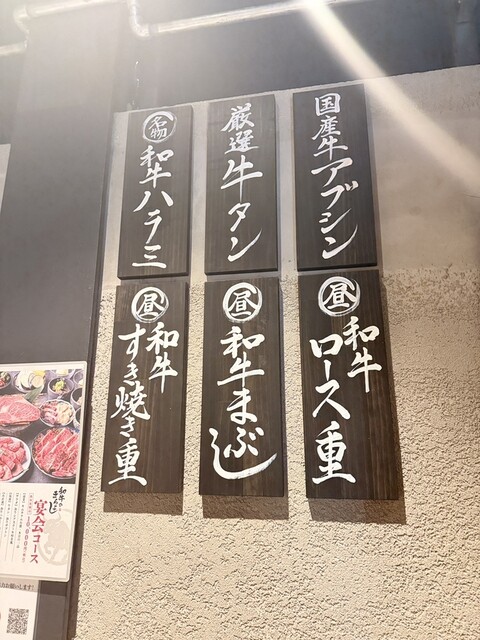 国産牛アブシン
厳選牛タン
名物
和牛ハラミ
昼
和牛
ロース重
昼
和牛まぶし
昼
和牛
すき焼き重
和牛
まぶし
宴会コース